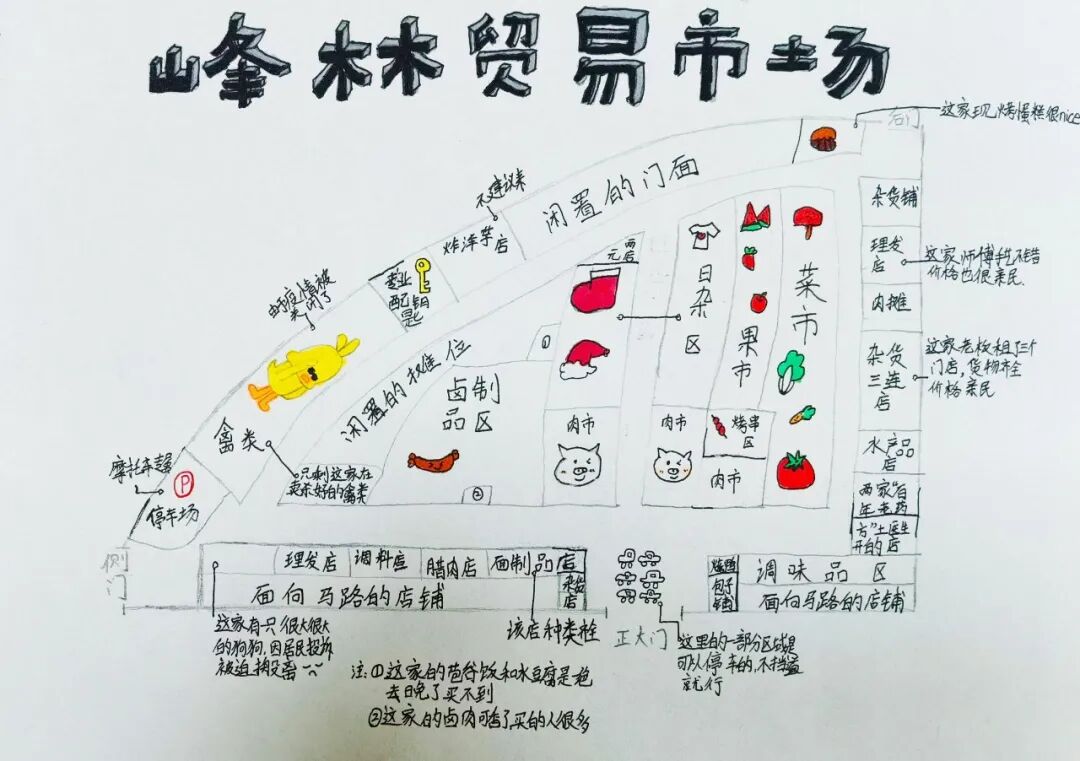 峰林贸易市场
后门
这家现烤蛋糕很nice
不建议来
闲置的门面
炸洋芋店
杂货铺
理发
店
这家师傅手艺不错
价格也很亲民
肉摊
杂货
三连
店
这家老板租了三个
门店,货物齐全
价格亲民
水产品
店
两家"百
年老药
方"土医生
开的店
由于疫情被
关闭了
营业
配钥
匙
两元店
日杂区
果市
菜市
闲置的摊位
卤制
品区
①
②
肉市
肉市
烤串
区
肉市
禽类
只剩这家在
卖杀好的禽类
摩托车
P
停车场
侧门
理发店
调料店
腊肉店
面制品店
杂货
店
面向马路的店铺
包子
铺
调味品区
面向马路的店铺
正大门
这家有只很大很大
的狗狗,因居民投诉
该店种类
这里的一部分区域是
可以停车的,不挡道
就行
注:①这家的苞谷饭和水豆腐是
去晚了买不到
②这家的卤肉可香了买的人很多